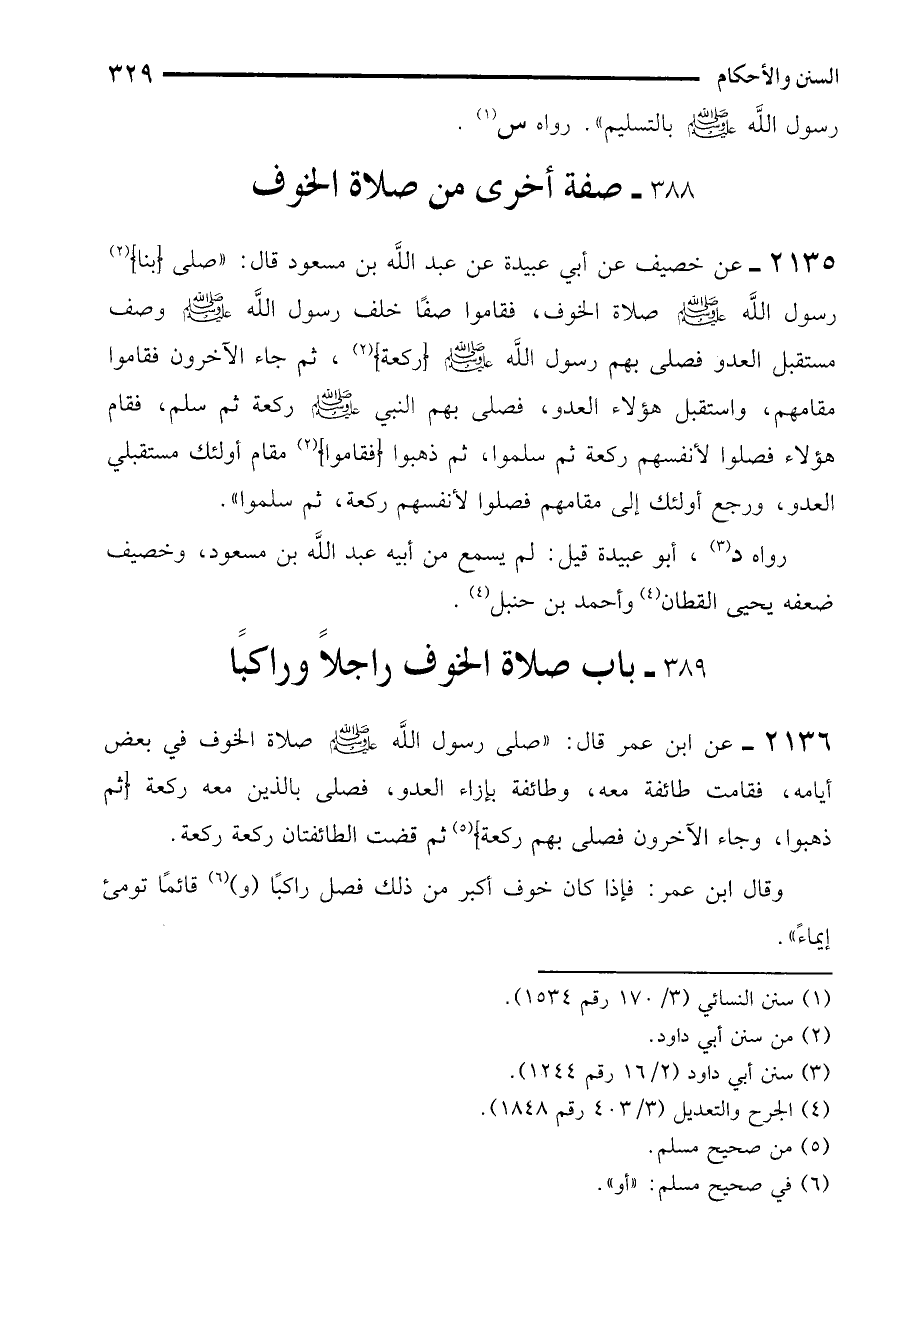 السنن والأحكام ٣٢٩
رسول اللَّه ﷺ بالتسليم». رواه س(١) .
٣٨٨ ـ صفة أخرى من صلاة الخوف
٢١٣٥ ـ عن خصيف عن أبي عبيدة عن عبد اللَّه بن مسعود قال: «صلى {بنا}(٢)
رسول اللَّه ﷺ صلاة الخوف، فقاموا صفًا خلف رسول اللَّه ﷺ وصف
مستقبل العدو فصلى بهم رسول اللَّه ﷺ {ركعة}(٢) ، ثم جاء الآخرون فقاموا
مقامهم، واستقبل هؤلاء العدو، فصلى بهم النبي ﷺ ركعة ثم سلم، فقام
هؤلاء فصلوا لأنفسهم ركعة ثم سلموا، ثم ذهبوا {فقاموا}(٢) مقام أولئك مستقبلي
العدو، ورجع أولئك إلى مقامهم فصلوا لأنفسهم ركعة، ثم سلموا».
رواه د(٣) ، أبو عبيدة قيل: لم يسمع من أبيه عبد اللَّه بن مسعود، وخصيف
ضعفه يحيى القطان(٤) وأحمد بن حنبل(٤) .
٣٨٩ ـ باب صلاة الخوف راجلاً وراكبًا
٢١٣٦ ـ عن ابن عمر قال: «صلى رسول اللَّه ﷺ صلاة الخوف في بعض
أيامه، فقامت طائفة معه، وطائفة بإزاء العدو، فصلى بالذين معه ركعة {ثم
ذهبوا، وجاء الآخرون فصلى بهم ركعة}(٥) ثم قضت الطائفتان ركعة ركعة.
وقال ابن عمر: فإذا كان خوف أكبر من ذلك فصل راكبًا (و)(٦) قائمًا تومئ
إيماءً».
(١) سنن النسائي (٣/ ١٧٠ رقم ١٥٣٤).
(٢) من سنن أبي داود.
(٣) سنن أبي داود (٢/ ١٦ رقم ١٢٤٤).
(٤) الجرح والتعديل (٣/ ٤٠٣ رقم ١٨٤٨).
(٥) من صحيح مسلم.
(٦) في صحيح مسلم: «أو».